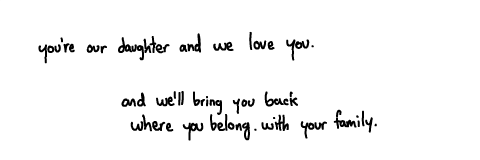 you're our daughter and we love you.
and we'll bring you back
where you belong. with your family.